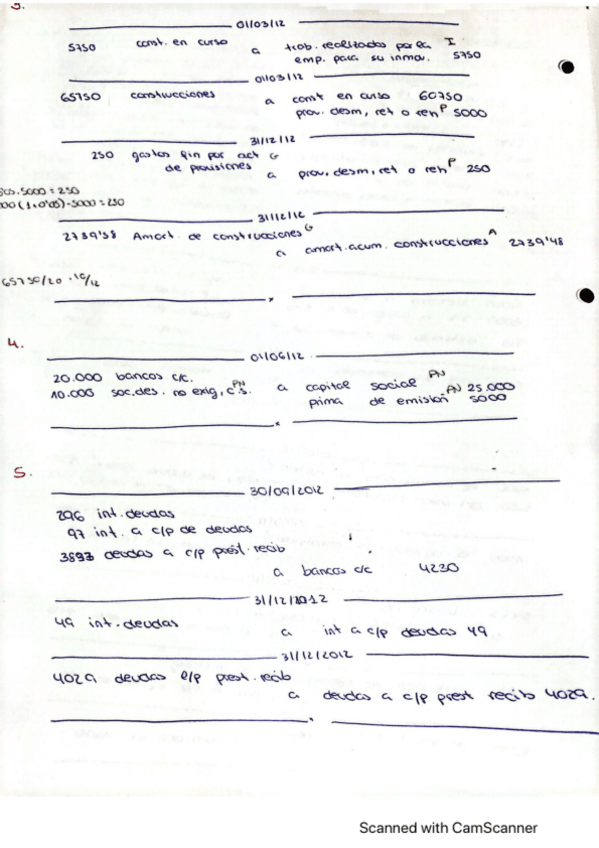 3.
01/03/12
5750 const. en curso
a trab. realizados por la I
emp. para su inmov. 5750
01/03/12
65750 construcciones
a const en curso 60750
prov. desm, ret o reh P 5000
31/12/12
250 gastos fin por act G
de provisiones
a prov. desm, ret o reh P 250
0'05.5000 = 250
000(1.0'05)-5000 = 250
31/12/12
2739'58 Amort. de construcciones G
a amort. acum. construcciones A 2739'48
65750/20 · 10/12
4.
01/06/12
20.000 bancos c/c.
10.000 soc. des. no exig, c.s. PN
a capital social PN 25.000
prima de emisión PN 5000
5.
30/09/2012
296 int. deudas
97 int. a c/p de deudas
3893 deudas a c/p prest. recib
a bancos c/c 4230
31/12/2012
49 int. deudas
a int a c/p deudas 49
31/12/2012
4029 deudas l/p prest. recib
a deudas a c/p prest recib 4029.
Scanned with CamScanner